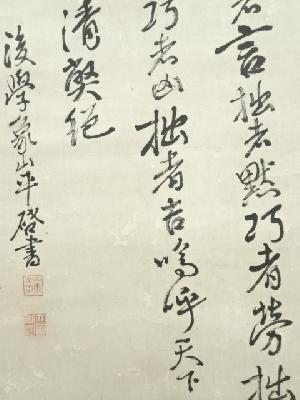 者言拙者默巧者勞拙
巧者凶拙者吉嗚呼天下
清弊絕
後學象山平啓書